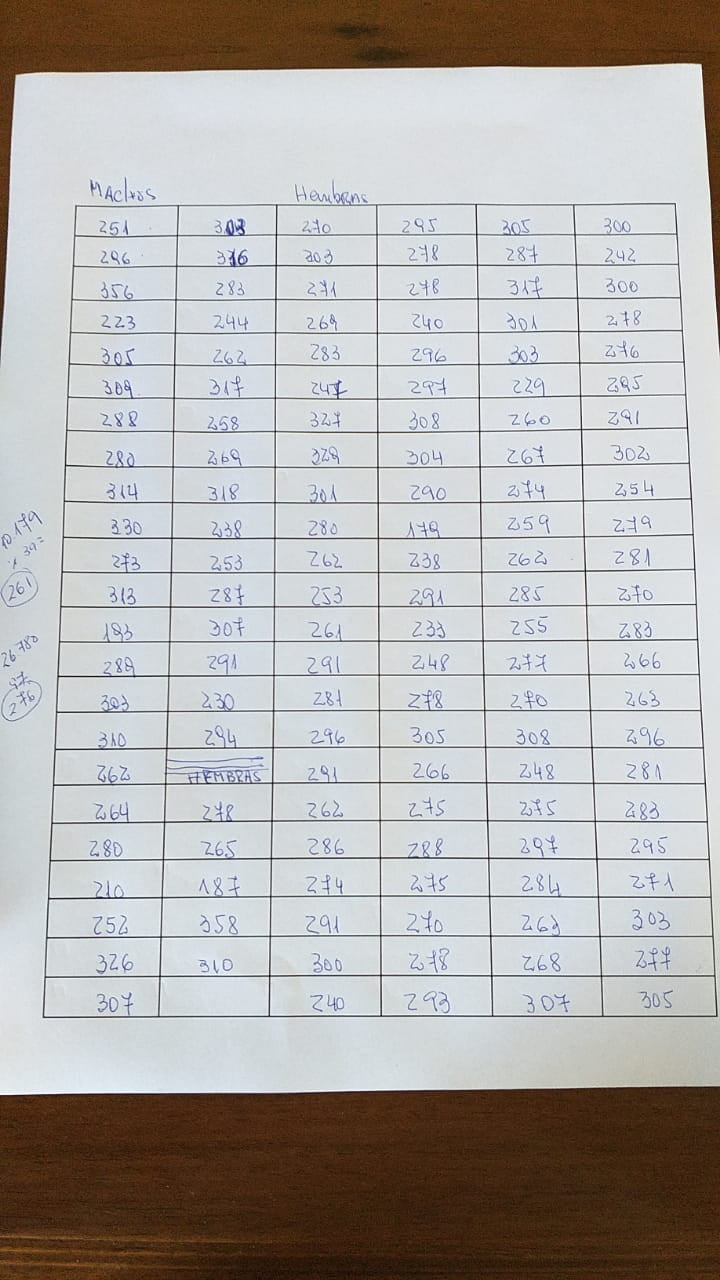 MACHOS Hembras
251 303 270 295 305 300
296 316 303 278 287 242
356 283 271 278 317 300
223 244 269 240 301 278
305 262 283 296 303 276
309 317 247 297 229 295
288 258 327 308 260 291
280 269 329 304 267 302
314 318 301 290 274 254
330 238 280 179 259 279
10.179
÷ 39=
273 253 262 238 262 281
261
313 287 253 291 285 270
193 307 261 233 255 283
26780
289 291 291 248 277 266
97
276
303 230 281 278 270 263
310 294 296 305 308 296
262 HEMBRAS 291 266 248 281
264 278 262 275 275 283
280 265 286 288 297 295
210 187 274 275 284 271
252 358 291 270 263 303
326 310 300 278 268 277
307 240 293 307 305